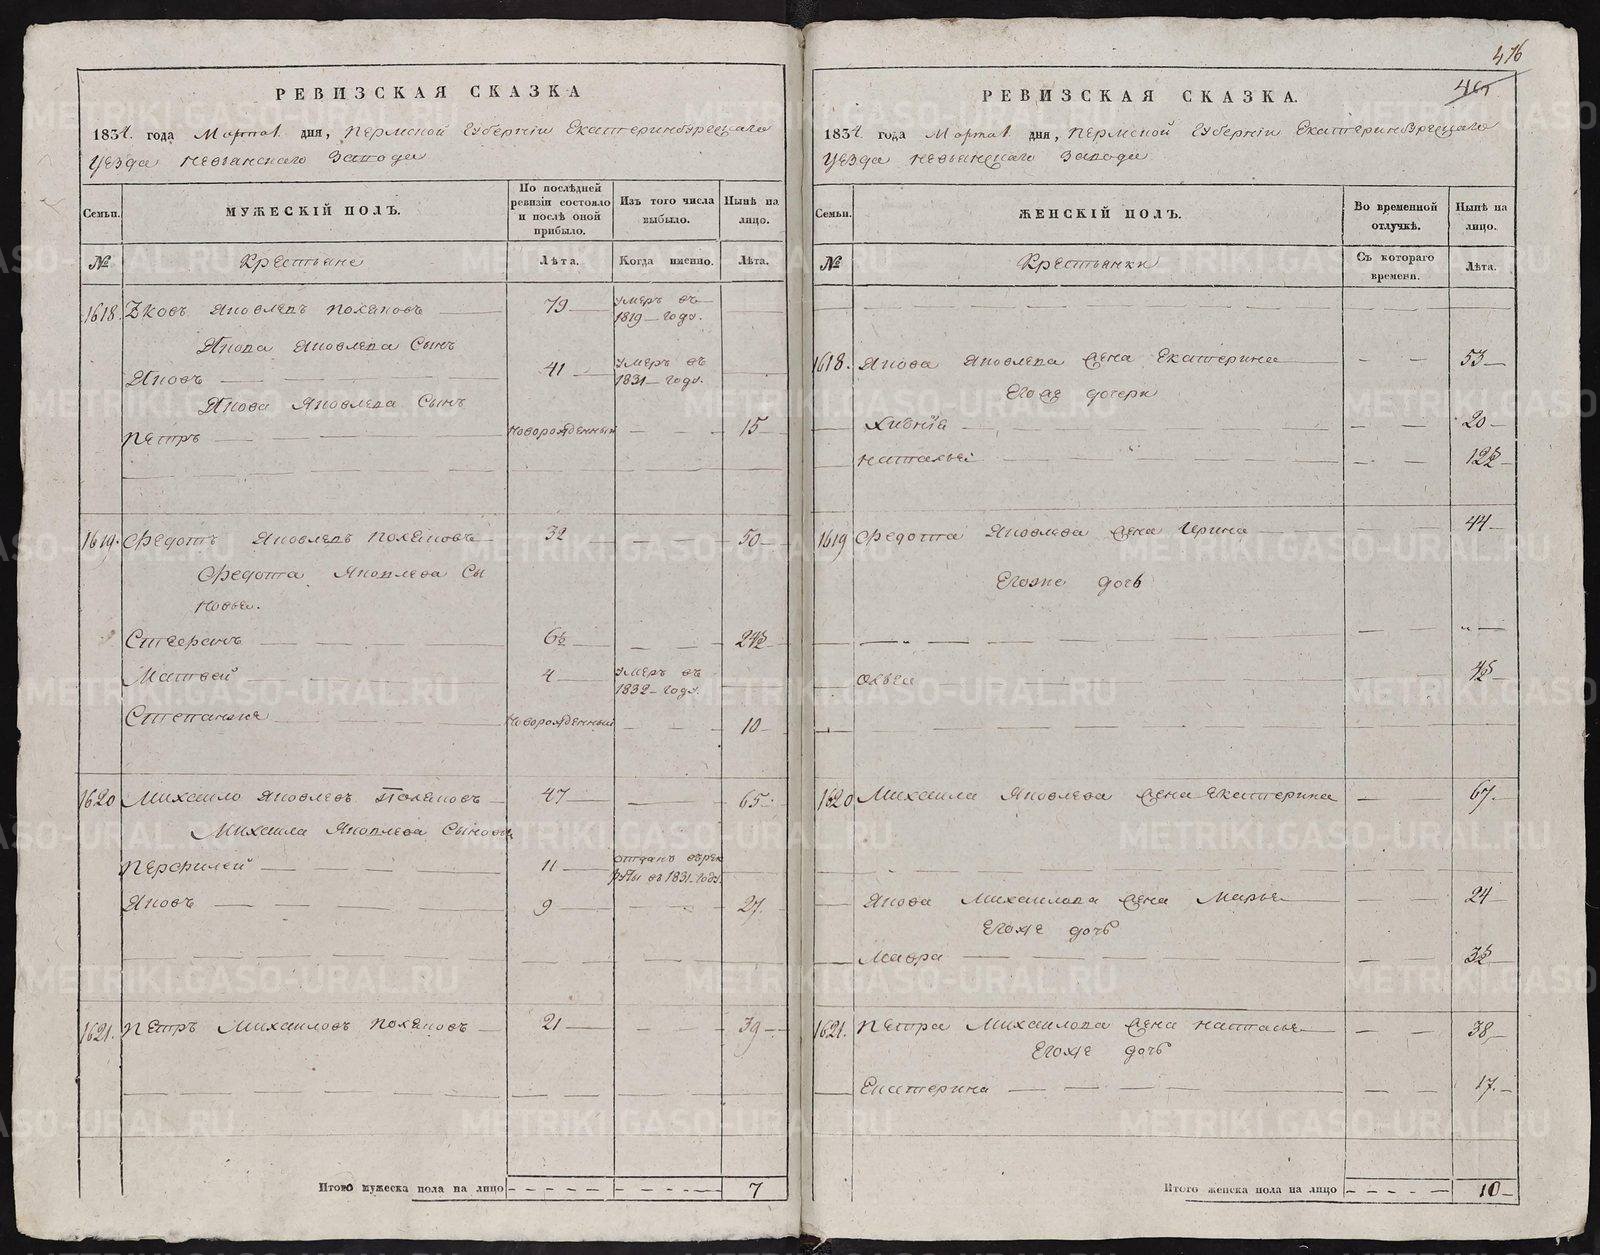 476
РЕВИЗСКАЯ СКАЗКА
1834 года Марта 1 дня, Пермской Губернiи Екатеринбурскаго
уезда Невьянскаго Завода
Семьи. МУЖЕСКIЙ ПОЛЪ. По послѣдней ревизiи состояло и послѣ оной прибыло. Изъ того числа выбыло. Нынѣ на лицо.
№ Крестьяне Лѣта. Когда именно. Лѣта.
1618. Яковъ Яковлевъ Поляковъ 79 умеръ въ 1819 году.
Якова Яковлева Сынъ
Яковъ 41 умеръ въ 1831 году.
Якова Яковлева Сынъ
Петръ Новорожденный 15
1619. Федотъ Яковлевъ Поляковъ 32 50
Федота Яковлева Сы
новья.
6½ 24½
Матвей 4 умеръ въ 1832 году.
Новорожденный 10
1620 Михаило Яковлевъ Поляковъ 47 65.
Михаила Яковлева Сыновья
Перфилей 11 отданъ въ рек руты въ 1831 году.
Яковъ 9 27.
1621. Петръ Михаиловъ Поляковъ 21 39
Итого мужеска пола на лицо 7
РЕВИЗСКАЯ СКАЗКА.
1834 года Марта 1 дня, Пермской Губернiи Екатеринбурскаго
уезда Невьянскаго Завода
Семьи. ЖЕНСКIЙ ПОЛЪ. Во временной отлучкѣ. Нынѣ на лицо.
№ Крестьянки Съ котораго времени. Лѣта.
1618. Якова Яковлева жена Екатерина 53
Егоже дочери
20
Наталья 12½
1619 Федота Яковлева жена Ирина 44
Егоже дочь
4½
1620 Михаила Яковлева жена Екатерина 67.
Якова Михаилова жена Марья 24
Егоже дочь
Мавра 3½
1621. Петра Михаилова жена Наталья 38,
Егоже дочь
Екатерина 17.
Итого женска пола на лицо 10
METRIKI.GASO-URAL.RU